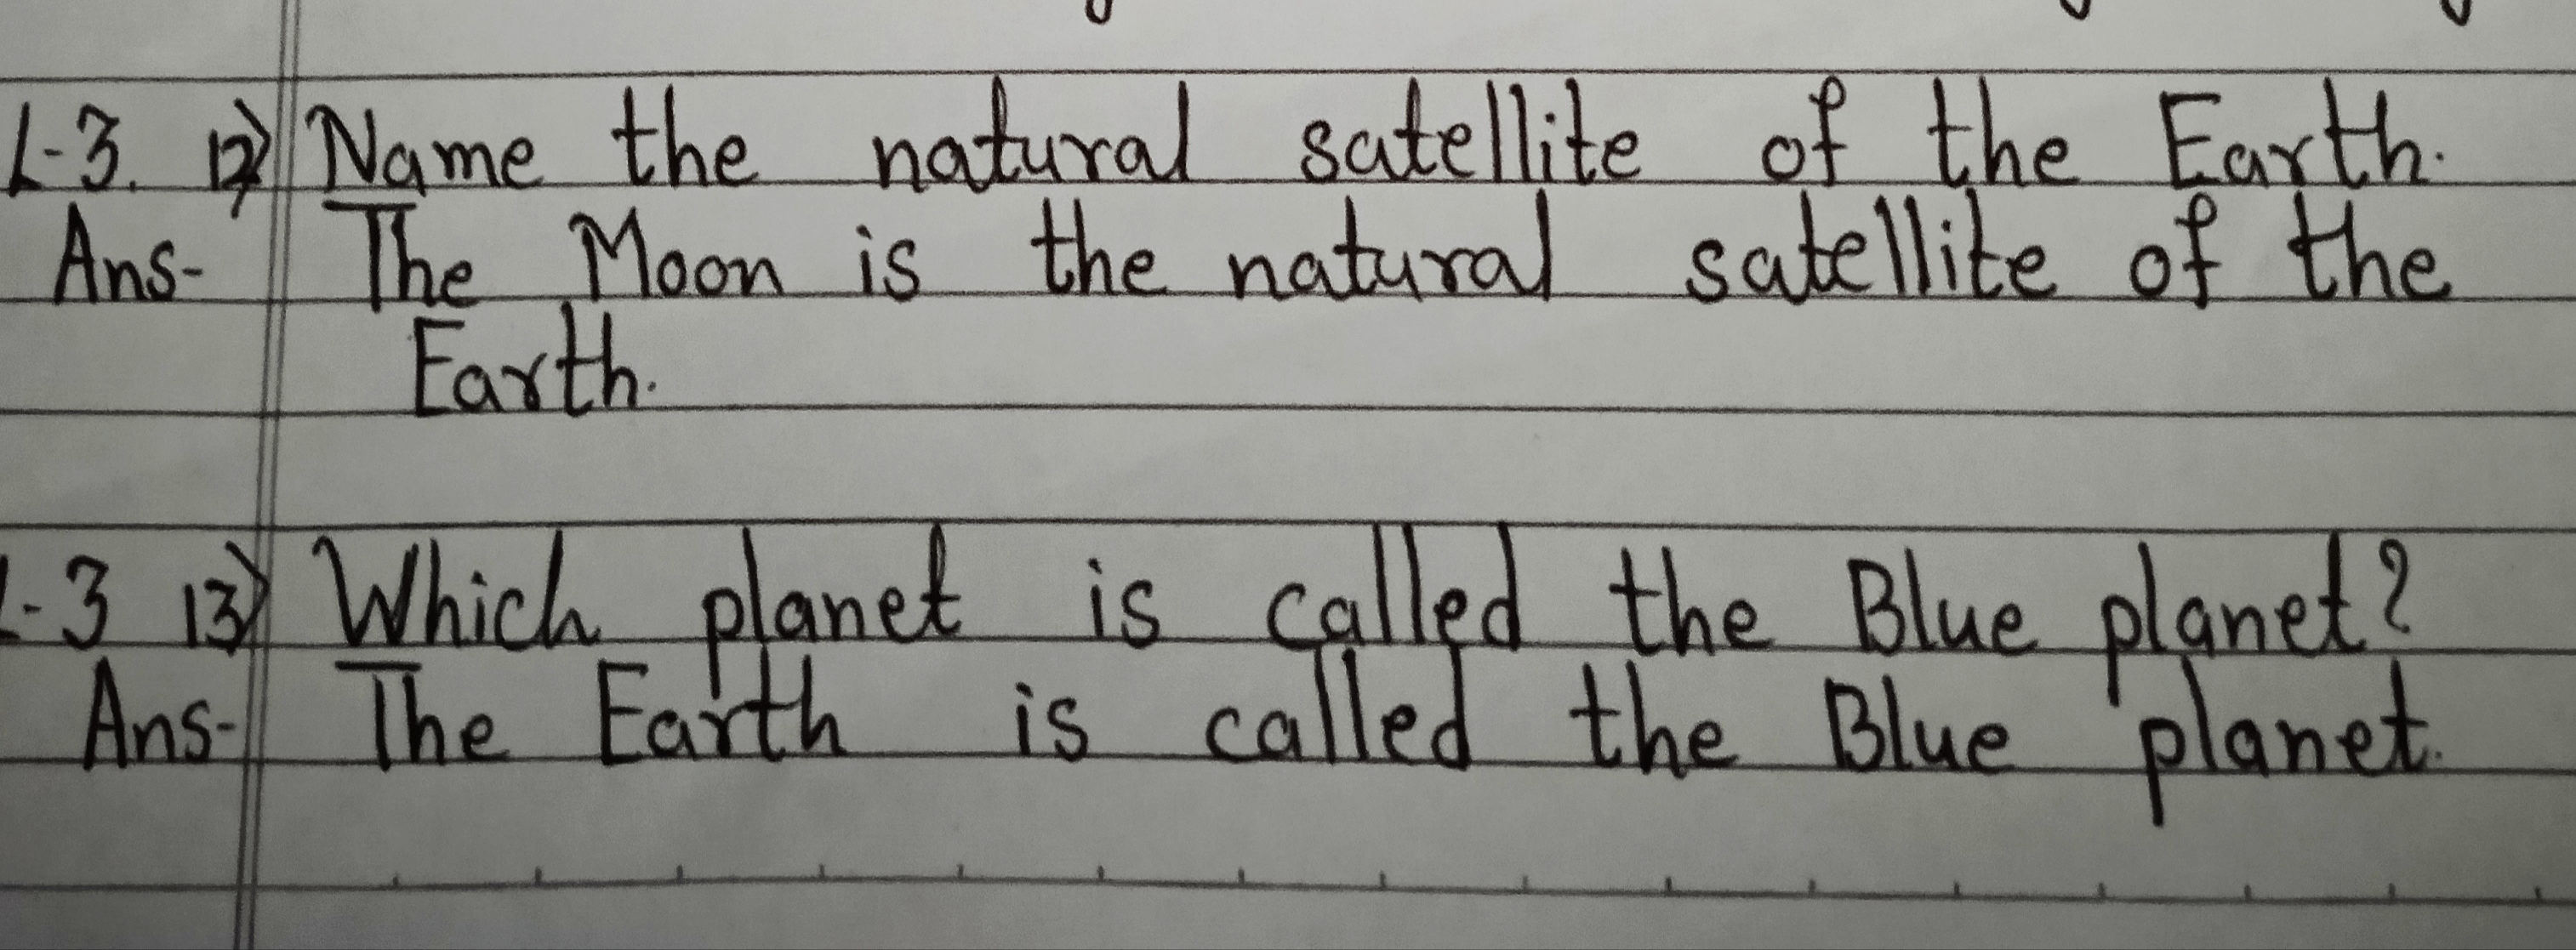 L-3. 12) Name the natural satellite of the Earth.
Ans- The Moon is the natural satellite of the
Earth.
L-3 13) Which planet is called the Blue planet?
Ans- The Earth is called the Blue planet.